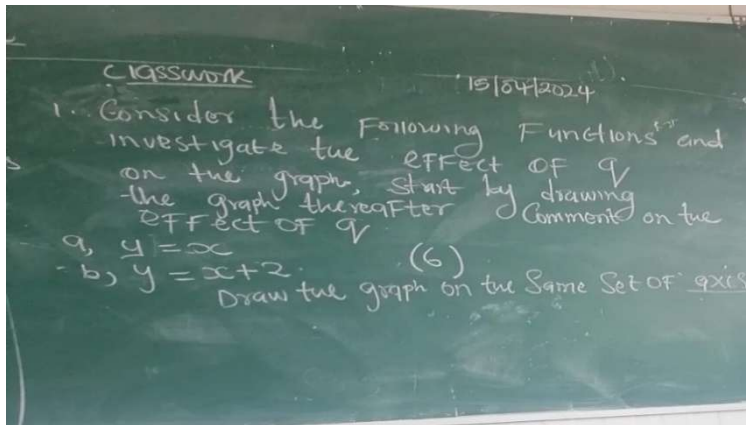 Classwork
15/04/2024
1. Consider the Following Functions and
investigate the effect of q
on the graph, start by drawing
the graph thereafter Comment on the
effect of q
a, y = x
b, y = x+2. (6)
Draw the graph on the Same Set OF axis